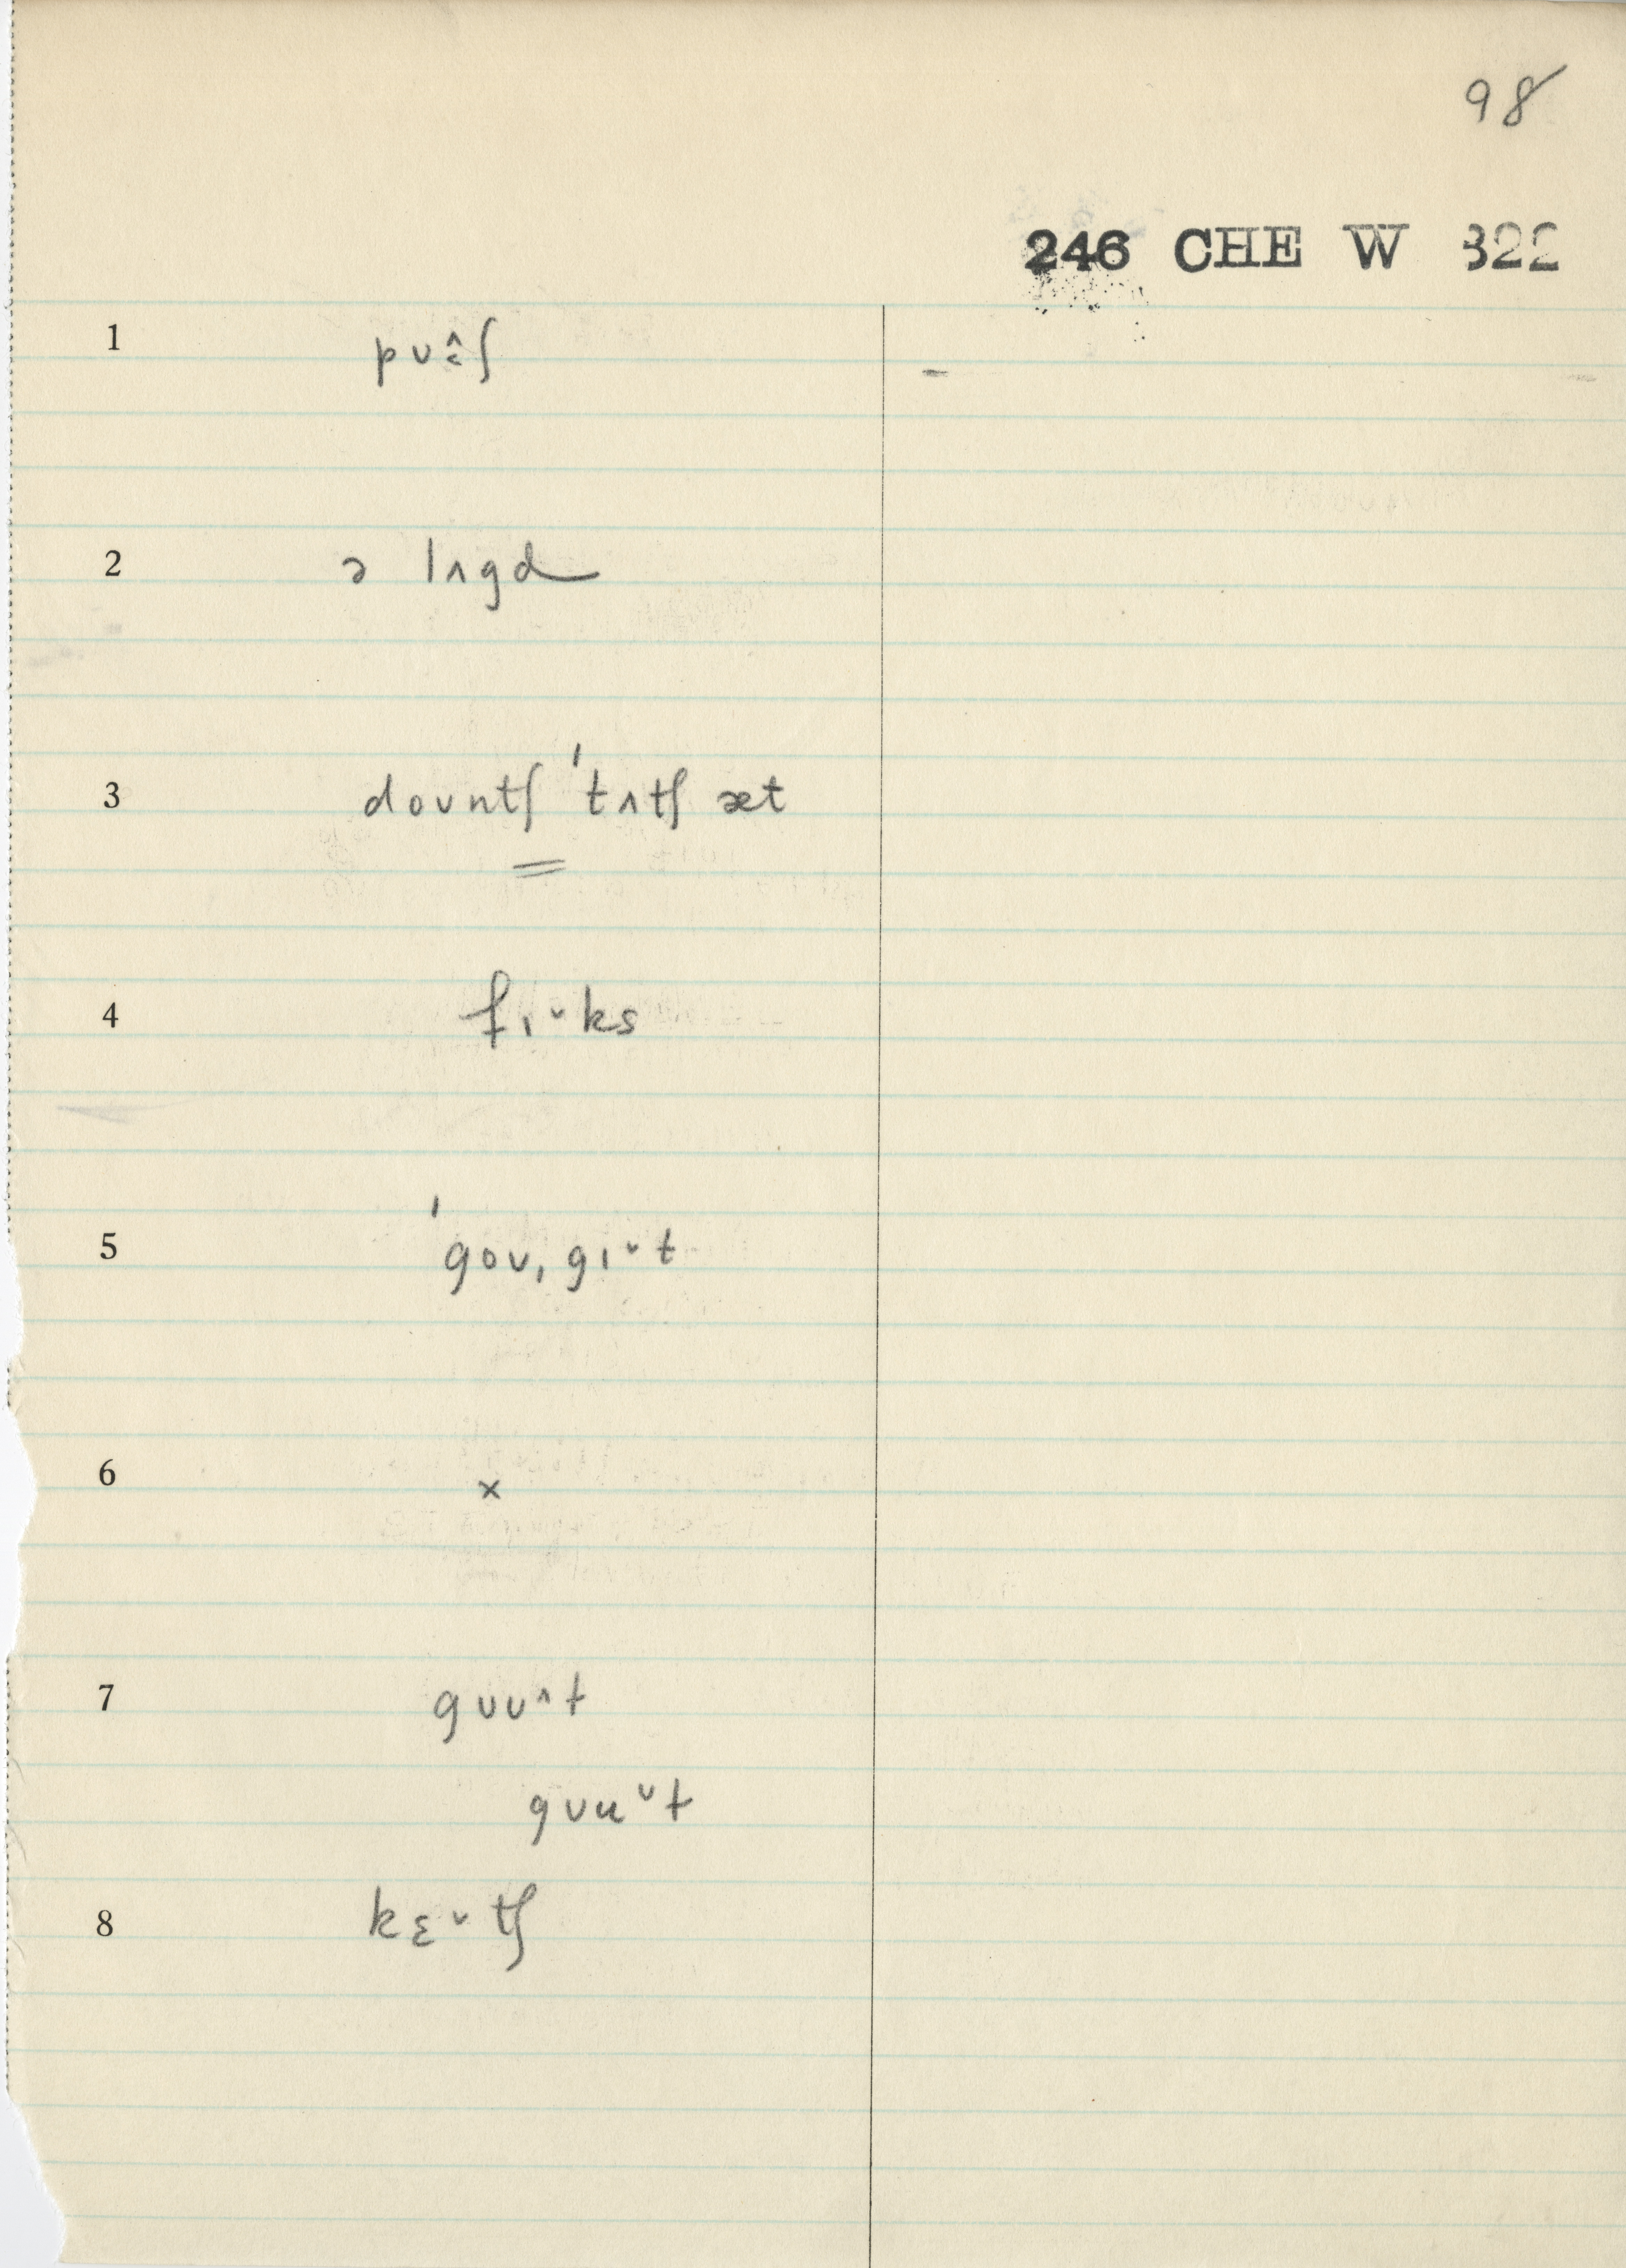 98
246 CHE W 322
1 pʊ˄˂ʃ -
2 ə lʌgd
3 doʊntʃ 'tʌtʃ æt
4 fɪ˅ks
5 'goʊˌgɪ˅t
6 ×
7 gʊʊ˄t
gʊu˅t
8 kɛ˅tʃ